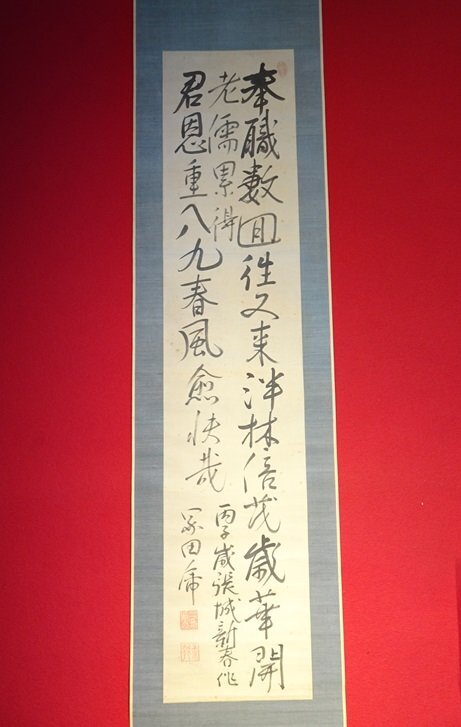 奉職數囬往又来泮林倍茂歳華開
老儒累得
君恩重八九春風愈快哉
丙子歳張城新春作
冢田虎